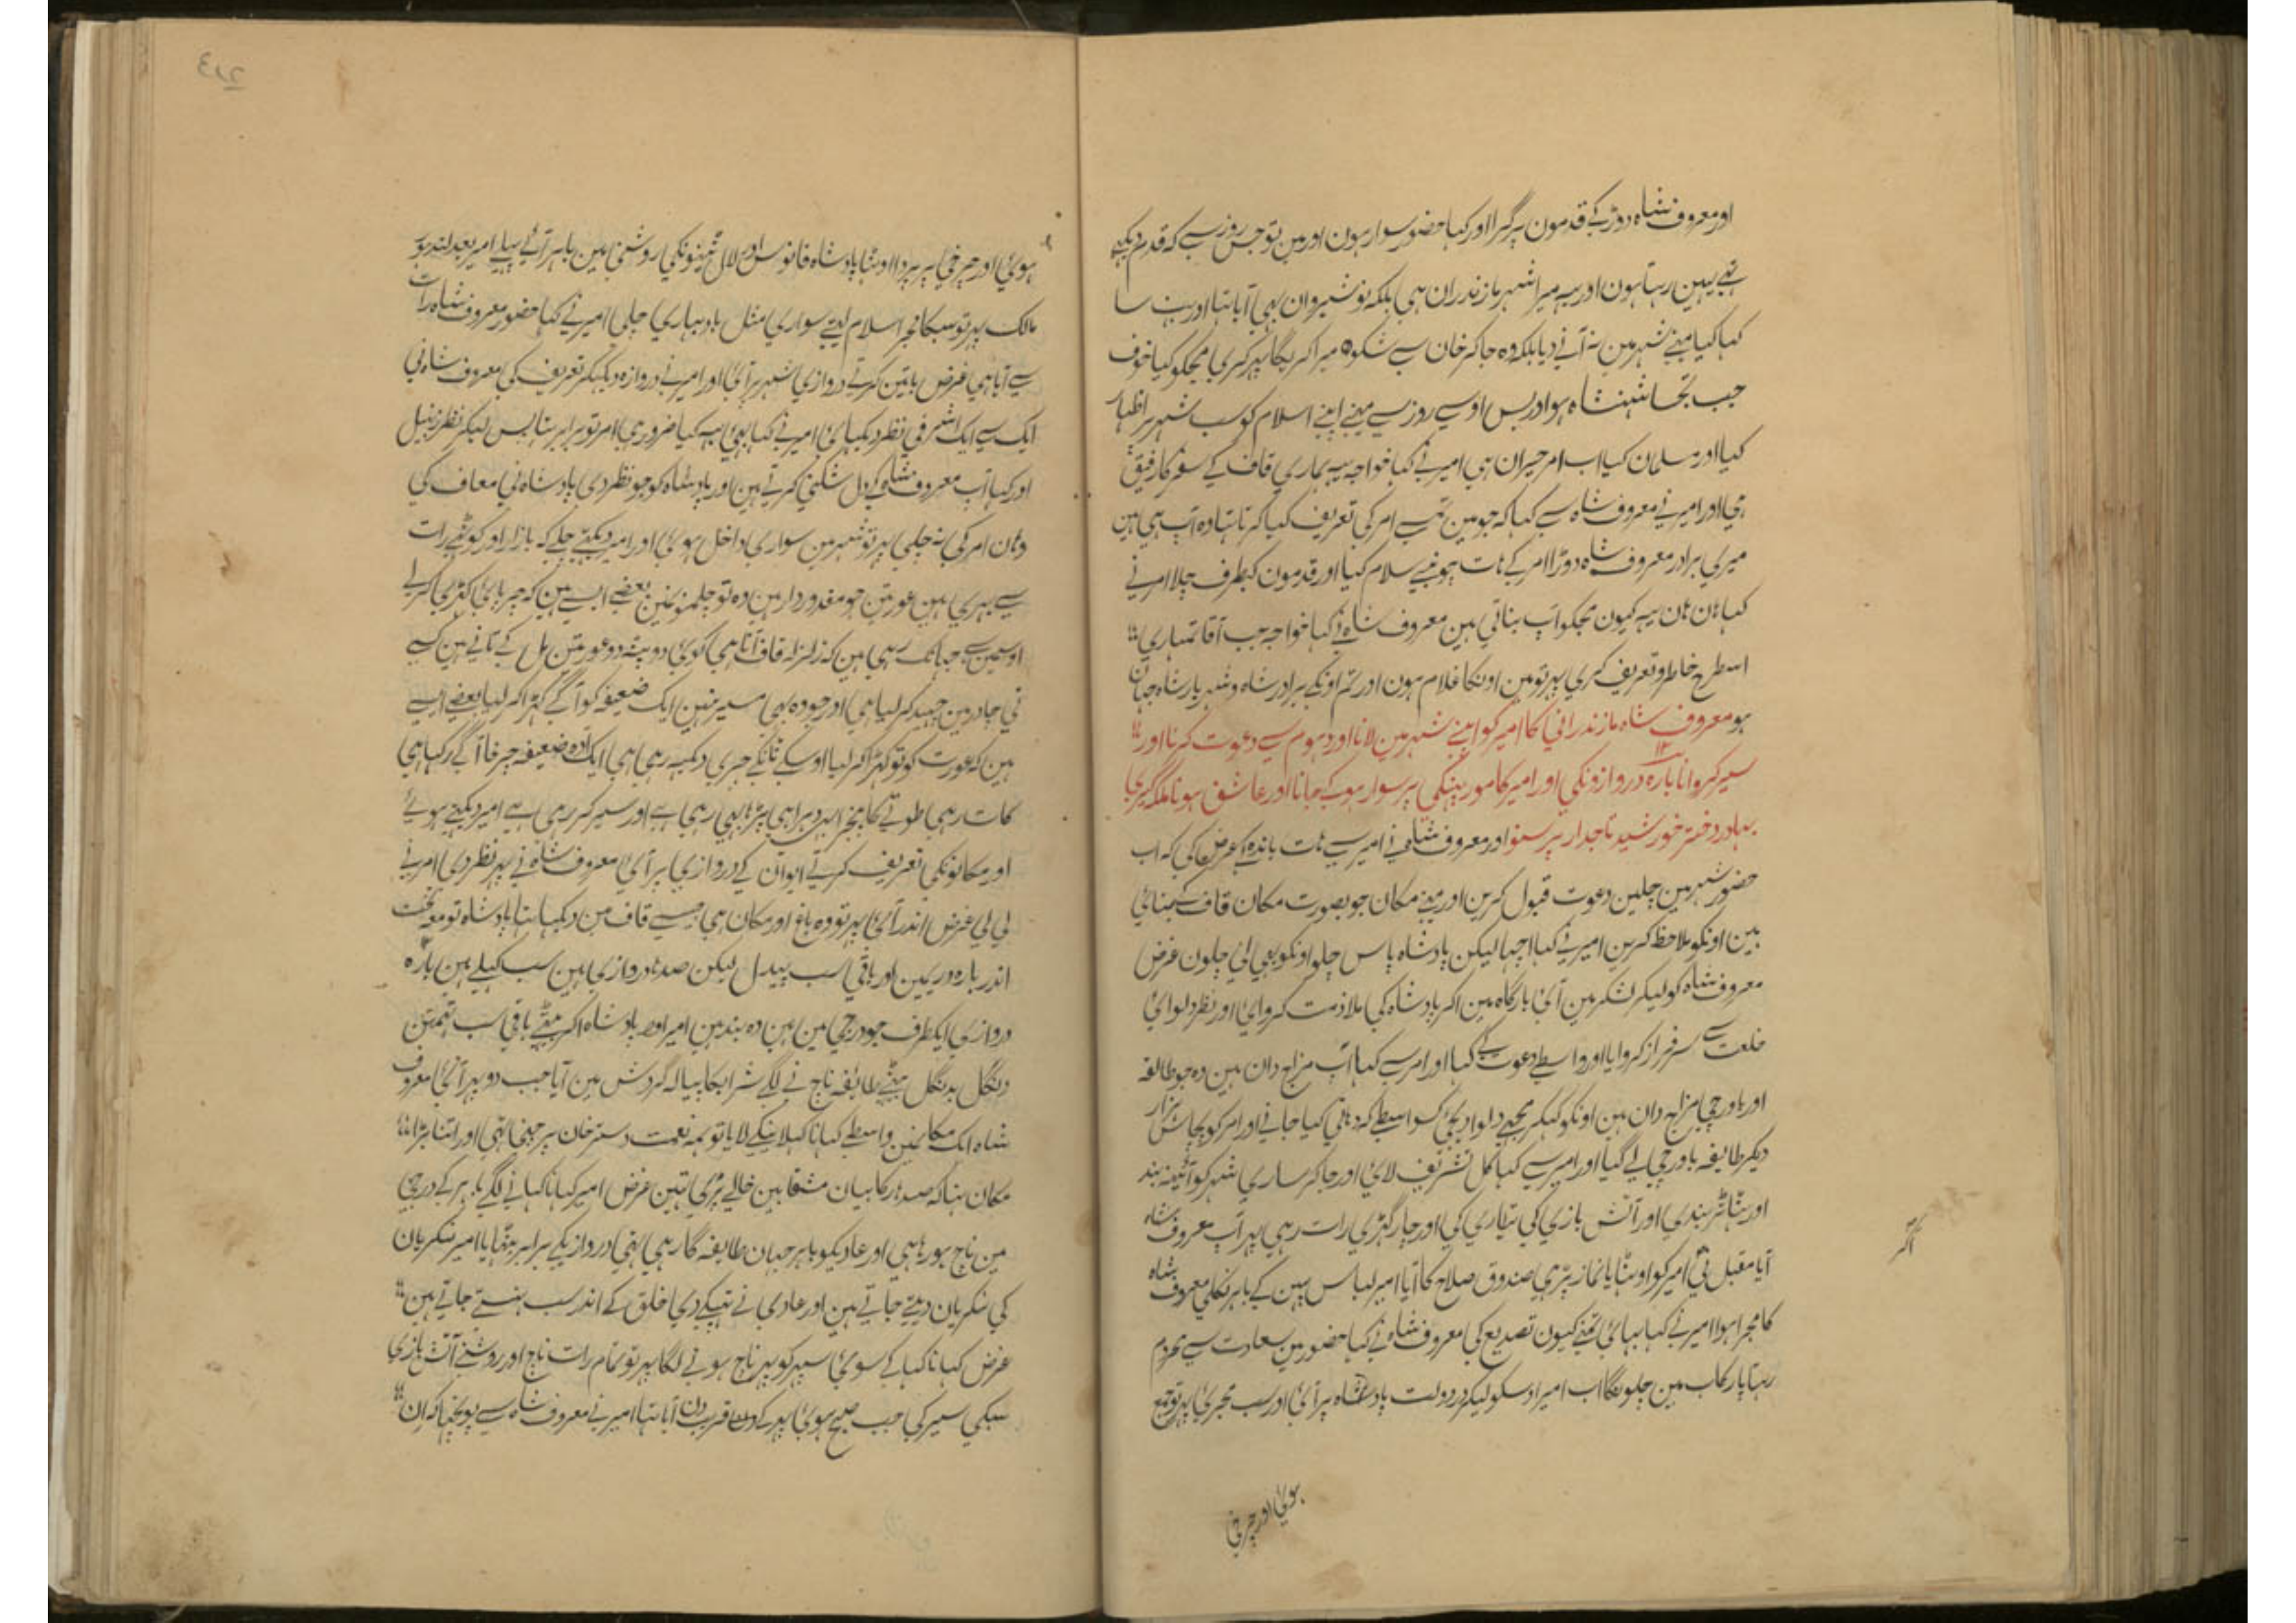 اور معروف شاہ دوڑ کے قدمون پر گرا اور کہا حضور سوار ہون اور مین تو جس روز سے کہ قدم دیکھے
تہے یہین رہتا ہون اور یہہ میرا شہر مازندران ہی بلکہ نوشیروان بہی آیا تہا اور بہت سا
کہا کیا مینے شہر مین نہ آنے دیا بلکہ وہ جا کر خان سے شکوہ میرا کریگا پہر کری مجکو کیا خوف
جب تجہا شہنشاہ ہو اور بس اوسے روز سے مینے اپنے اسلام کو سب شہر پر اظہار
کیا اور مسلمان کیا اب امیر حیران ہی امیر نے کہا خواجہ یہہ ہماری قاف کے سفر کا رفیق
ہی اور امیر نے معروف شاہ سے کہا کہ جو مین تمسے امر کی تعریف کیا کرتا تہا وہ آپ ہی ہین
میری برادر معروف شاہ دوڑا امر کے ہات چومنیے سلام کیا اور قدمون کیطرف چلا امر نے
کہا ہان ہان یہہ کیون مجکو آپ بناتی ہین معروف شاہ نے کہا خواجہ جب آقا تمہاری
اسطرح خاطر و تعریف کری پہر تو مین اونکا غلام ہون اور تم اونکے برادر شاہ و شہریار شاہ جہان
ہو معروف شاہ مازندرانی کا امیر کو اپنے شہر مین لانا اور دہوم سے دعوت کرنا اور
سیر کروانا بارہ دروازونکی اور امیر کا مور پنکہی پر سوار ہوکے جانا اور عاشق ہونا ملکہ گیری
بہادر دختر خورشید تاجدار پر سنو اور معروف شاہ نے امیر سے ہات باندہ کے عرض کی کہ اب
حضور شہر مین چلین دعوت قبول کرین اور مینے مکان جو بصورت مکان قاف کے بنائی
ہین اونکو ملاحظ کرین امیر نے کہا اچہا لیکن پادشاہ پاس چلو اونکو بہی لی چلون غرض
معروف شاہ کو لیکر لشکر مین آئی بارگاہ مین آکر پادشاہ کی ملازمت کروائی اور نظر دلوائی
خلعت سے سرفراز کروایا اور واسطے دعوت کے کہا اور امر سے کہا آپ مزاج دان ہین وہ جو طائفہ
اور باورچی مزاجدان ہین اونکو لیکر مجہے دلوا دیجئی کسواسطے کہ دہانی کیا جانے اور امر کو پچاس ہزار
دیکر طایفہ باورچی لے گیا اور امیر سے کہا کل تشریف لائی اور جا کر ساری شہر کو آئینہ بند
اور ٹہاٹر بندی اور آتش بازی کی تیاری کی اور چار گہڑی رات رہی پہر آپ معروف شاہ
آیا مقبل نی امیر کو اوٹہایا نماز پڑہی صندوق صلاح کا آیا امیر لباس پہن کے باہر نکلی معروف شاہ
کا مجرا ہوا امیر نے کہا بہائی تمنے کیون تصدیع کی معروف شاہ نے کہا حضور مین سعادت سے محروم
رہتا پا رکاب مین چلونگا اب امیر اوسکو لیکر در دولت پادشاہ پر آئی اور سب مجری پہر توجیع
ہوئی اور چرخی
ہوئی اور چرخی پر پردا اوٹہا پادشاہ فانوس اور لال ٹینونکی روشنی مین باہر آئے پہلے امیر بعد لندہور
مالک پہر تو سبکا مجرا سلام لیتے سواری مثل باد بہاری چلی امیر نے کہا حضور معروف شاہ رات
سے آیا ہی غرض باتین کرتے دروازی شہر پر آئی اور امیر نے دروازہ دیکہکر تعریف کی معروف شاہ نی
ایک سے ایک اشرفی نظر دیکہائی امیر نے کہا بہئی یہہ کیا ضرور ہی امر تو برابر تہا بس لیکر نظر زنبیل
اور کہا آپ معروف شاہ کی دل شکنی کرتے ہین اور پادشاہ کو جو نظر دی پادشاہ نی معاف کی
وہان امر کی نہ چلی پہر تو شہر مین سواری داخل ہوئی اور امیر دیکہتے چلے کہ بازار اور کوٹہے رات
سے بہری ہین عورتین جو مقدور دار ہین وہ تو چلمنونمین بعضے ایسے ہین کہ چرپائی کہڑی کر لے
اوسمین سے جہانک رہی ہین کہ زلزلہ قاف آتا ہی کوئی دوپٹہ دو عورتین مل کے تانے ہین کسے
نی چادر مین چہید کر لیا ہی اور جو وہ بہی میسر نہین ایک ضعیفہ کو آگے کہڑا کر لیا بعضے ایسے
ہین کہ عورت کو تو کہڑا کر لیا اوسکے ٹانگے چری دیکہہ رہی ہی ایک آدہ ضعیفہ چرخا آگے رکہا ہی
کات رہی طوتے کا پنجرا بہر دہرا ہی پڑہا بہی رہی ہے اور سیر کر رہی ہے امیر دیکہتے ہوئے
اور مکانونکی تعریف کرتے ایوان کے دروازی پر آئی معروف شاہ نے پہر نظر دی امر نے
لی لی غرض اندر آئی پہر تو وہ باغ اور مکان ہی جیسے قاف مین دیکہا تہا پادشاہ تو معہ تخت
اندر بارہ دری مین اور باقی سب پیدل لیکن صدہا دروازی ہین سب کہلے ہین بارہ
دروازی ایکطرف جو درجی مین ہین وہ بند ہین امیر اور پادشاہ آکر بیٹہے باقی سب تہمتن
دنگل بدنگل بیٹہے طائفہ ناچنے لگے شرابکا پیالہ گردش مین آیا جب دو پہر آئی معروف
شاہ ایک مکانمین واسطے کہانا کہلانیکے لایا تو ہمہ نعمت دسترخان پر چنی تہی اور اتنا بڑا
مکان تہا کہ صدہا رکابیان مشقابین خالے پڑی تہین غرض امیر کہانا کہانے لگے باہر کے درجی
مین ناچ ہو رہا ہی اور عادیکو باہر جہان طایفہ گا رہی تہی دروازیکے برابر بیٹہایا امیر شکریان
کی شکریان دیتے جاتے ہین اور عادی نے تہپکے دی خلق کے اندر سب ہنستے جاتے ہین
غرض کہانا کہا کے سوئی سپہر کو پہر ناچ ہونے لگا پہر تو تمام رات ناچ اور روشنے آتش بازی
سبکی سیر کی جب صبح ہوئی پہر کے دن قریب دن آیا تہا امیر نے معروف شاہ سے پوچہا کہ ان